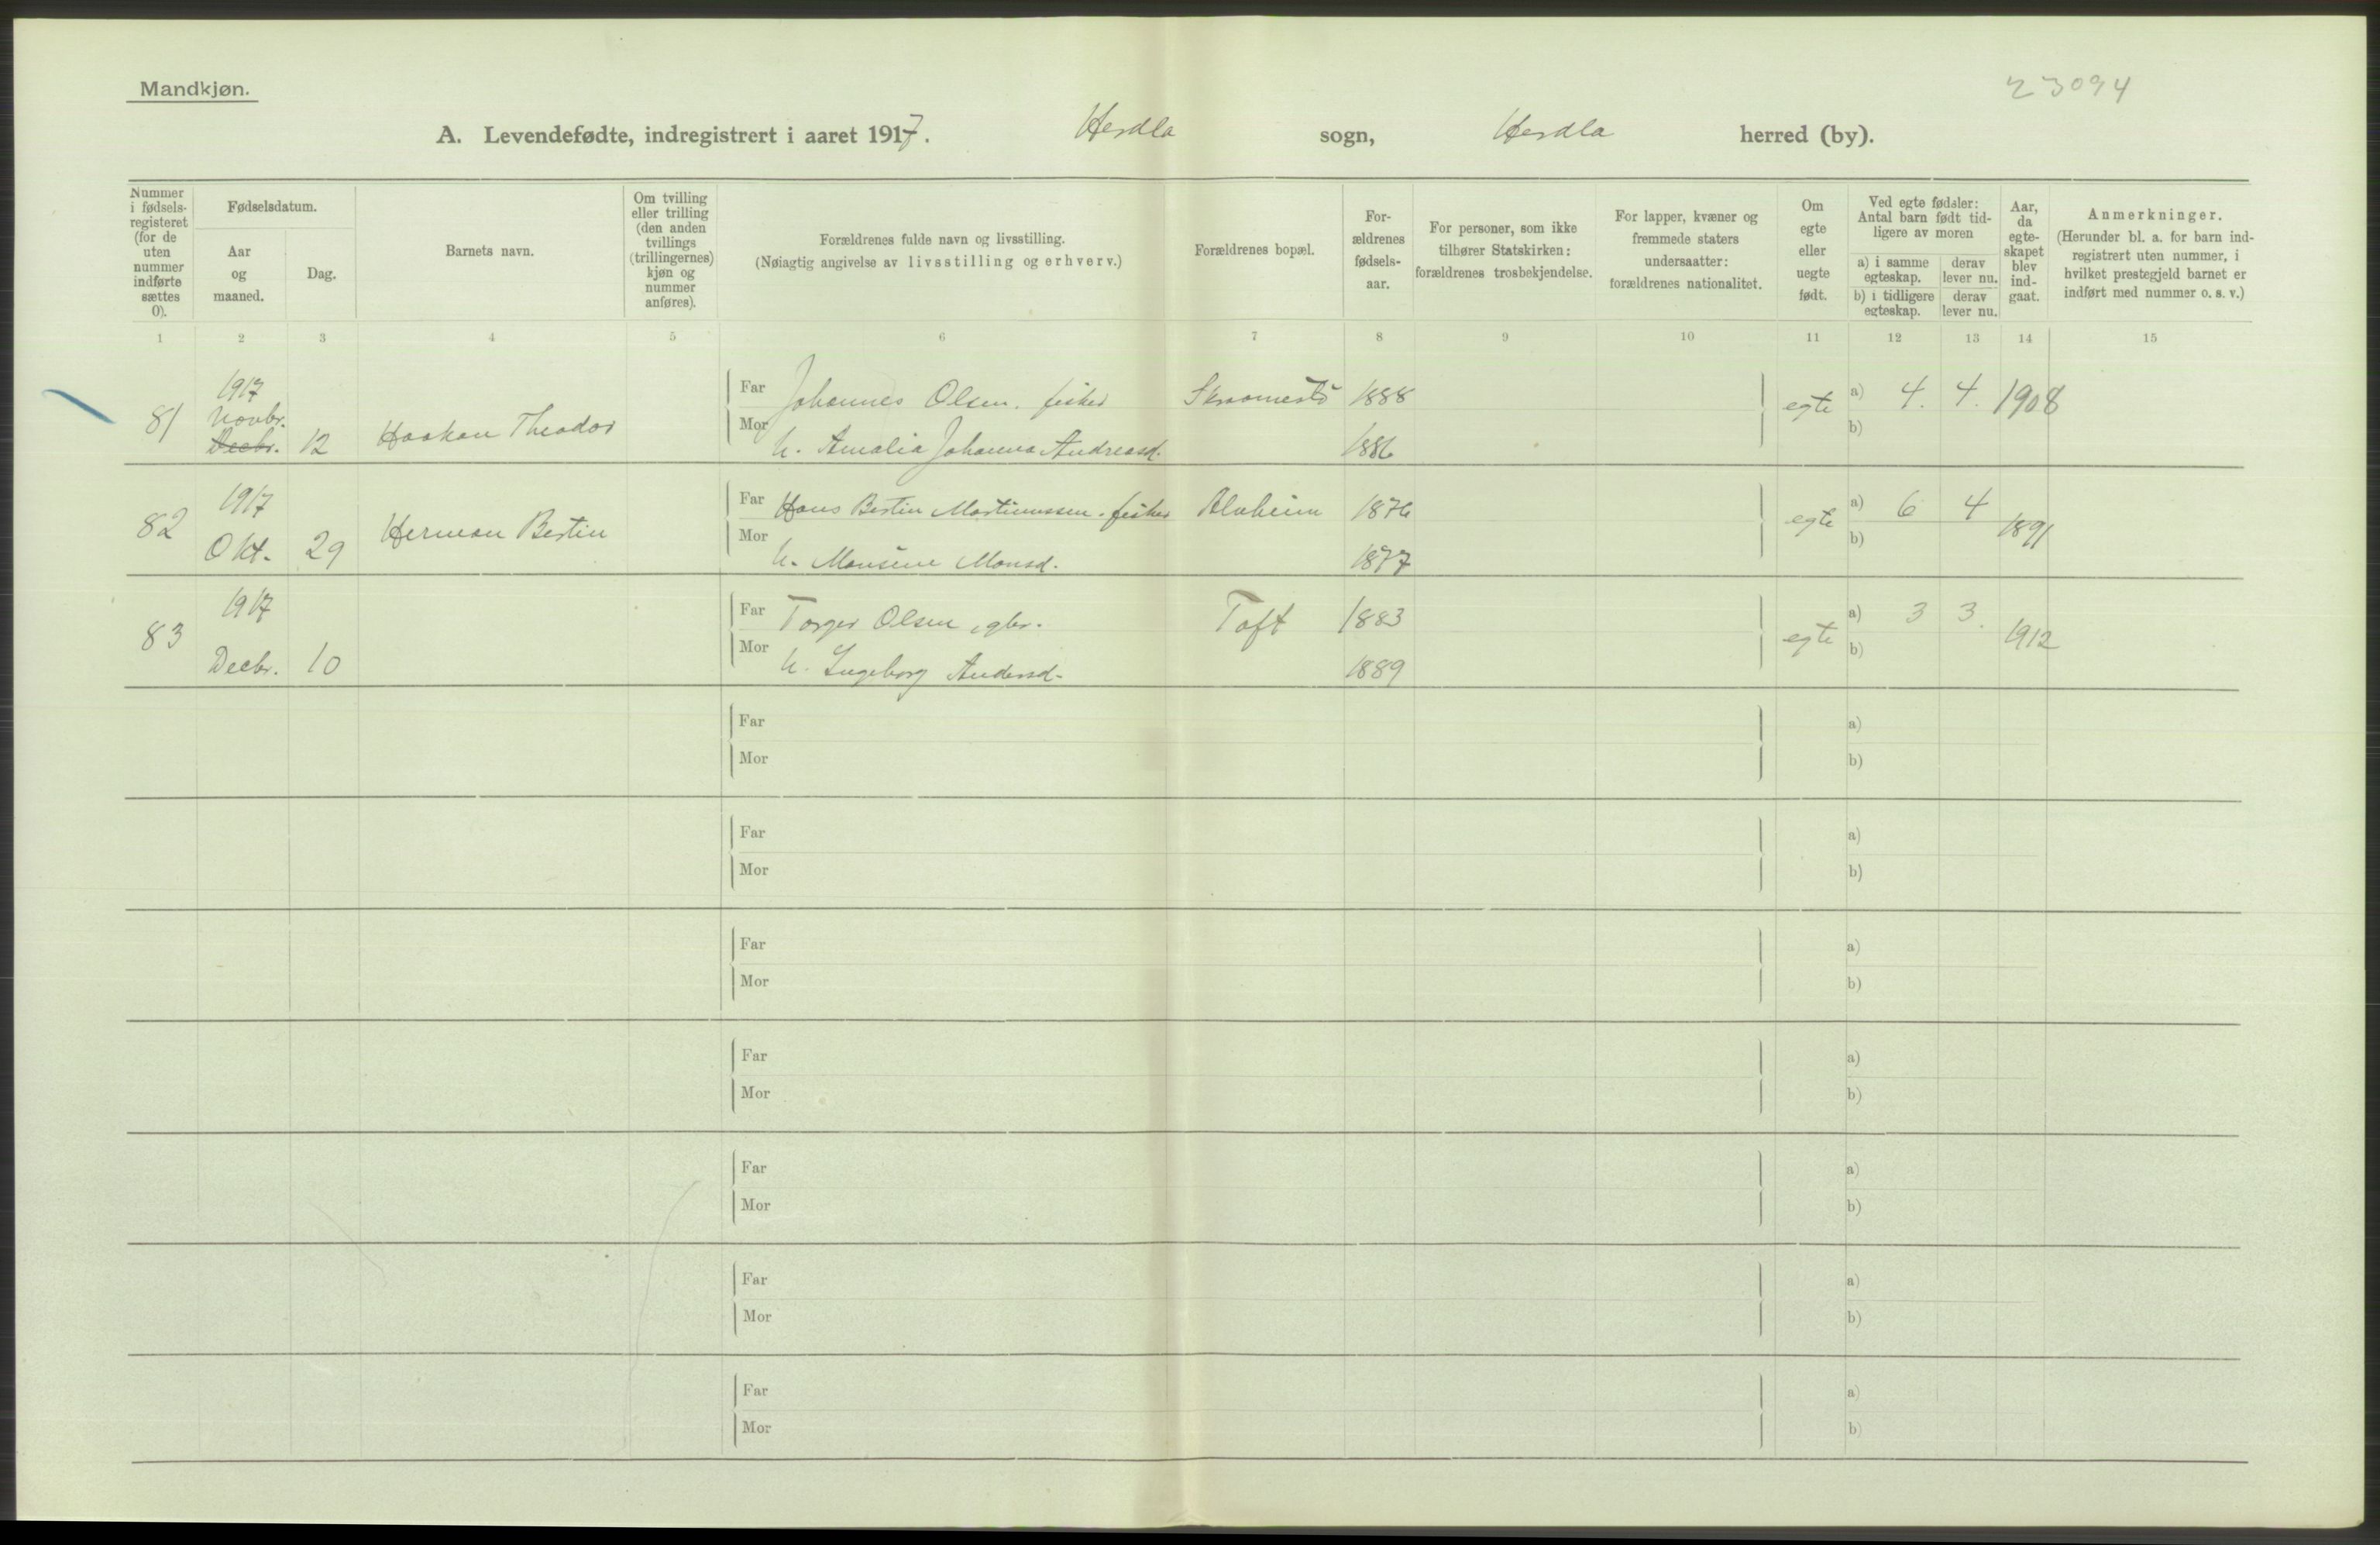 Mandkjøn.
23094
A. Levendefødte, indregistrert i aaret 1917. Herdla sogn, Herdla herred (by).
Nummer i fødsels-registeret (for de uten nummer indførte sættes 0).
Fødselsdatum.
Aar og maaned.
Dag.
Barnets navn.
Om tvilling eller trilling (den anden tvillings (trillingernes) kjøn og nummer anføres).
Forældrenes fulde navn og livsstilling.
(Nøiagtig angivelse av livsstilling og erhverv.)
Forældrenes bopæl.
For-ældrenes fødsels-aar.
For personer, som ikke tilhører Statskirken: forældrenes trosbekjendelse.
For lapper, kvæner og fremmede staters undersaatter: forældrenes nationalitet.
Om egte eller uegte født.
Ved egte fødsler: Antal barn født tid-ligere av moren
a) i samme egteskap.
derav lever nu.
b) i tidligere egteskap.
derav lever nu.
Aar, da egte-skapet blev ind-gaat.
Anmerkninger.
(Herunder bl. a. for barn ind-registrert uten nummer, i hvilket prestegjeld barnet er indført med nummer o. s. v.)
1 2 3 4 5 6 7 8 9 10 11 12 13 14 15
81 1917 Novbr. Decbr. 12 Haakon Theodor
Far Johannes Olsen. fisker 1888 egte a) 4. 4. 1908
Mor h. Amalia Johanna Andreasd. 1886 b)
82 1917 Okt. 29 Herman Bertin
Far Hans Bertin Martinussen. fisker Alvheim 1876 egte a) 6 4 1891
Mor h. Monsine Monsd. 1877 b)
83 1917 Decbr. 10
Far Torger Olsen, gbr. Toft 1883 egte a) 3 3. 1912
Mor h. Ingeborg Andersd. 1889 b)
Far a)
Mor b)
Far a)
Mor b)
Far a)
Mor b)
Far a)
Mor b)
Far a)
Mor b)
Far a)
Mor b)
Far a)
Mor b)